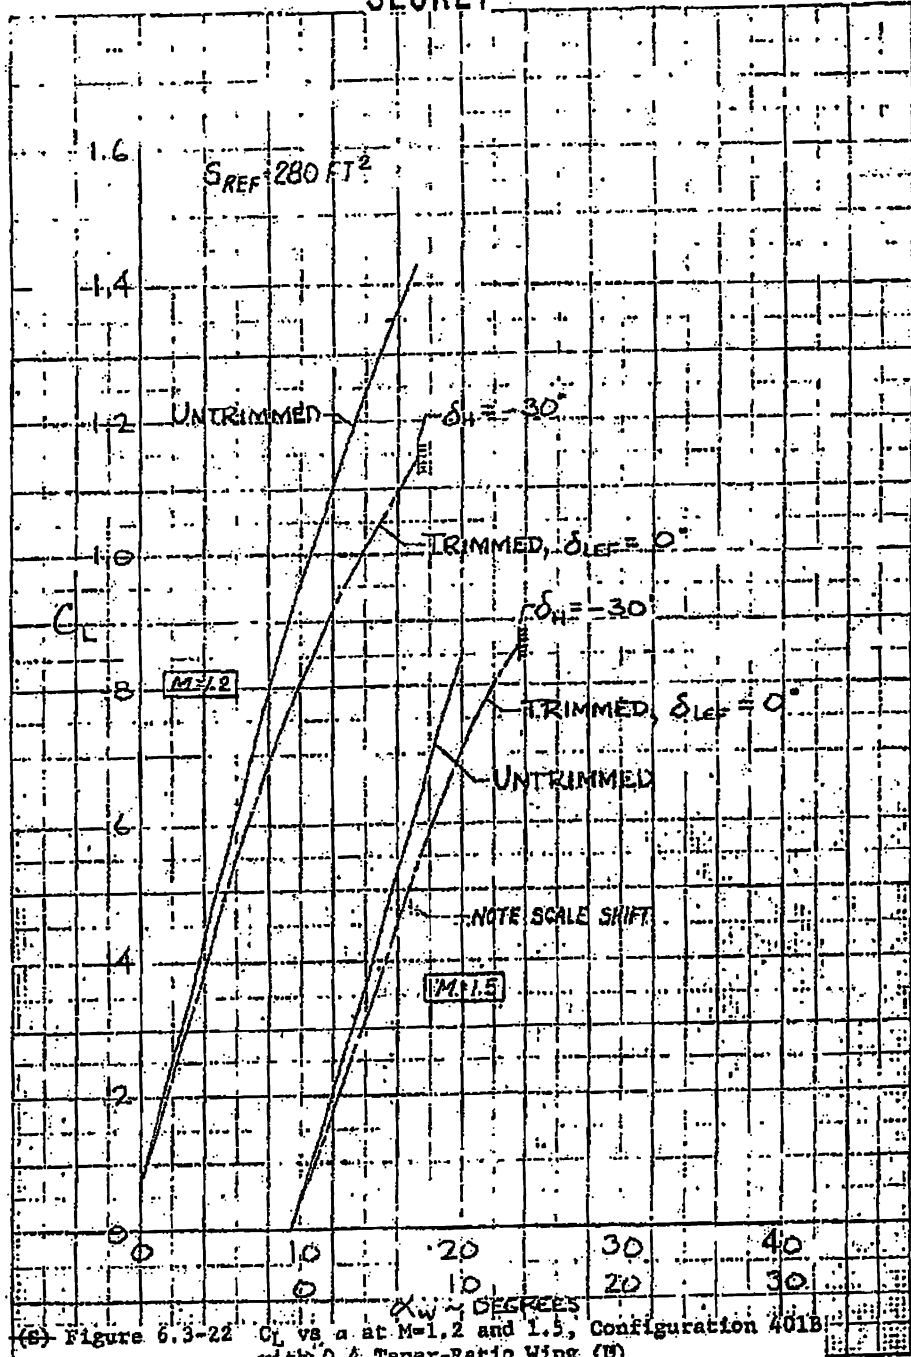 SECRET
1.6
S_REF = 280 FT²
1.4
UNTRIMMED
1.2
δ_H = -30°
1.0
TRIMMED, δ_LEF = 0°
C_L
δ_H = -30°
M=1.2
.8
TRIMMED, δ_LEF = 0°
UNTRIMMED
.6
NOTE SCALE SHIFT
.4
M=1.5
.2
0
0 10 20 30 40
0 10 20 30
α_W ~ DEGREES
(S) Figure 6.3-22 C_L vs α at M=1.2 and 1.5, Configuration 401B
with 0.4 Taper-Ratio Wing (U)